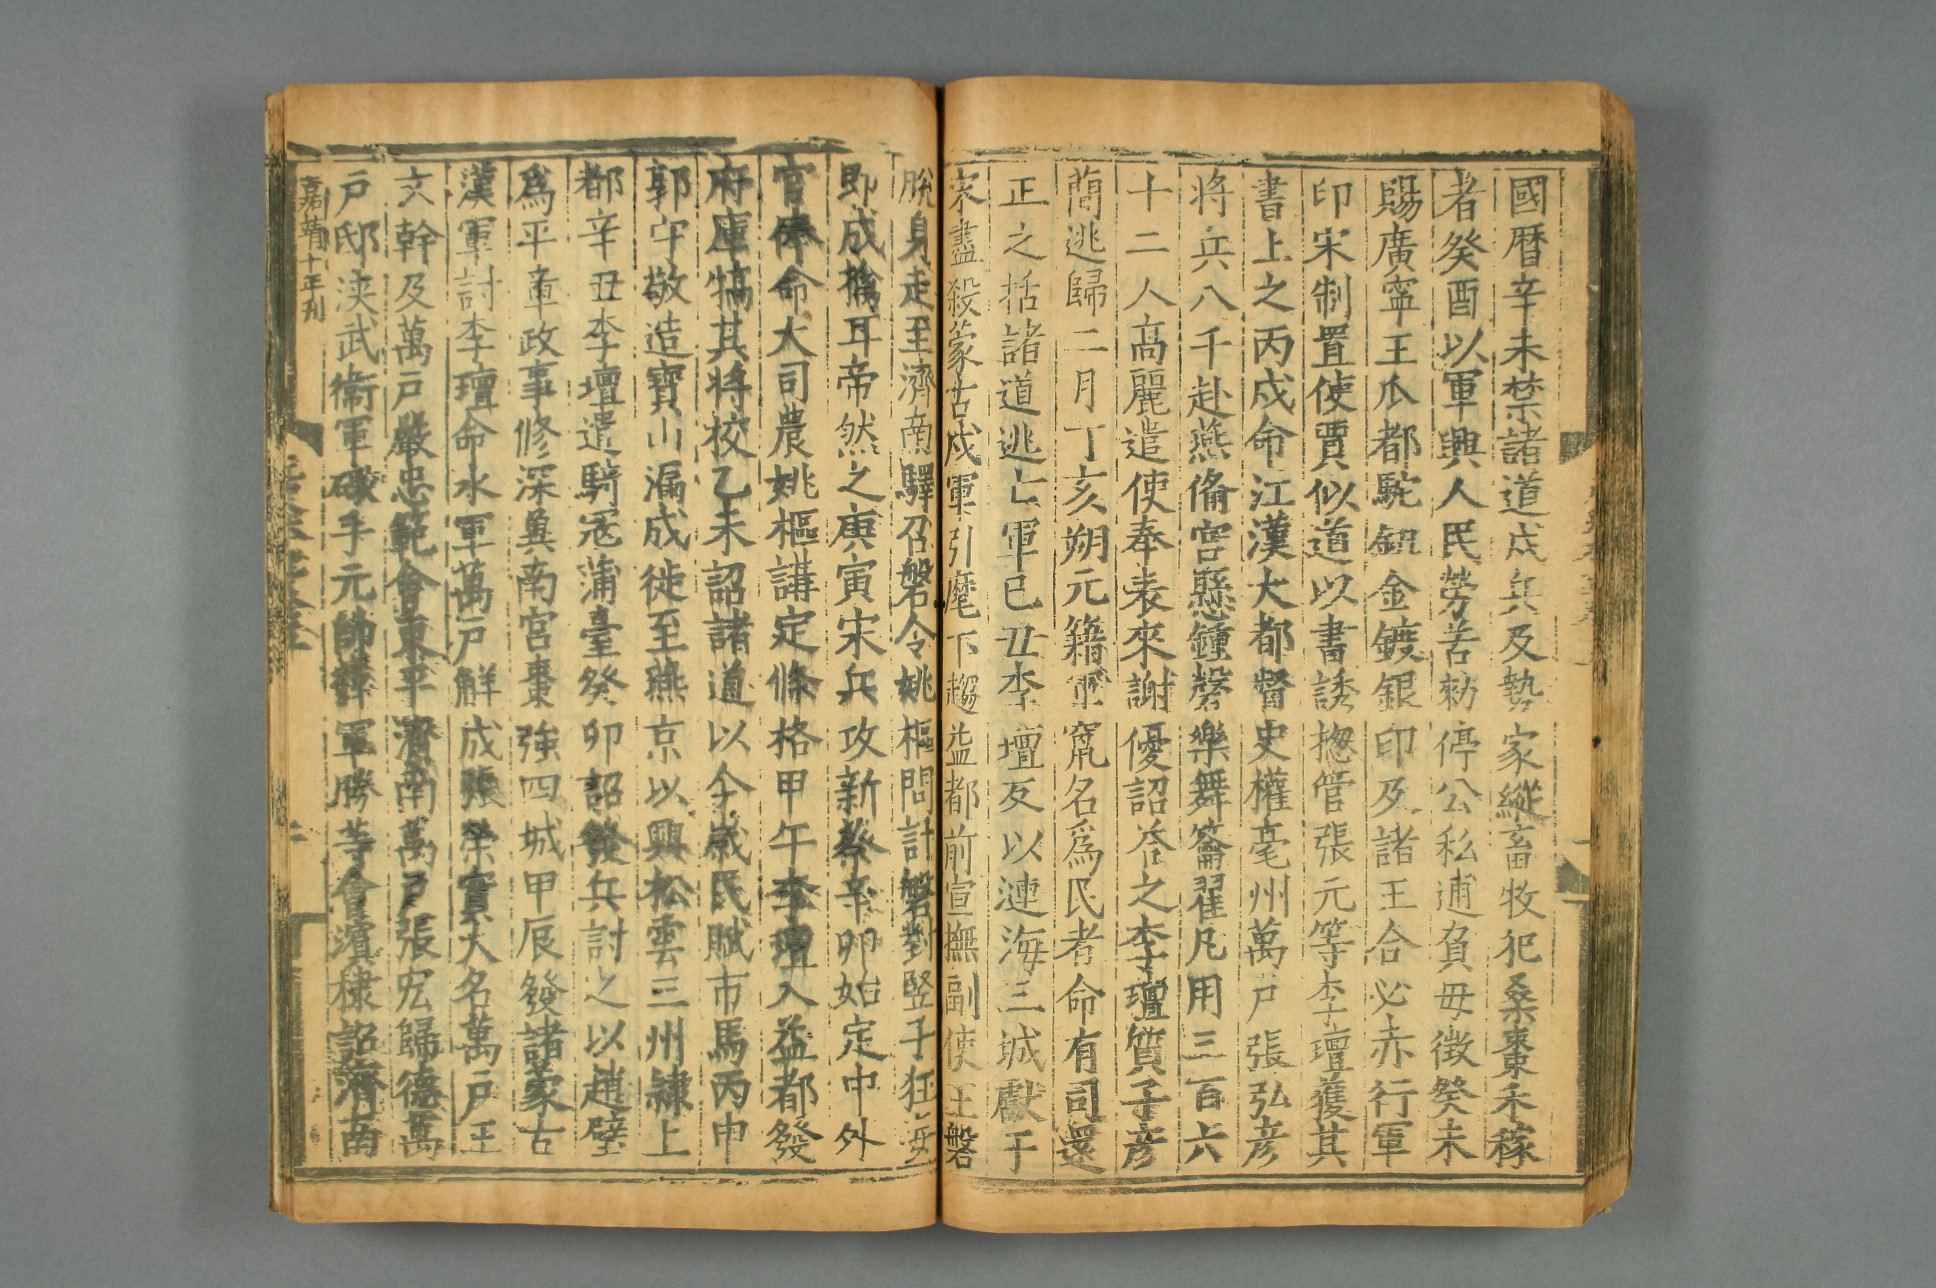 國曆辛未禁諸道戍兵及勢家縱畜牧犯桑棗禾稼
者癸酉以軍興人民勞苦敕停公私逋負毋徵癸未
賜廣寧王爪都駝鈕金鍍銀印及諸王合必赤行軍
印宋制置使賈似道以書誘揔管張元等李璮獲其
書上之丙戍命江漢大都督史權亳州萬戶張弘彥
将兵八千赴燕俻宫懸鍾磬樂舞籥翟凡用三百六
十二人高麗遣使奉表來謝優詔荅之李璮質子彥
蕳逃歸二月丁亥朔元籍軍竄名爲民者命有司還
正之括諸道逃亡軍已丑李璮反以漣海三城獻于
宋盡殺蒙古戍軍引麾下趨益都前宣撫副使王磐
脫身走至濟南驛召磐令姚樞問計磐對竪子狂妄
即成擒耳帝然之庚寅宋兵攻新蔡辛卯始定中外
官俸命大司農姚樞講定條格甲午李璮入益都發
府庫犒其将校乙未詔諸道以今歲民賦市馬丙申
郭守敬造寶山漏成徙至燕京以興松雲三州隷上
都辛丑李璮遣騎宼蒲臺癸卯詔發兵討之以趙璧
爲平章政事修深兾南宮棗強四城甲辰發諸蒙古
漢軍討李璮命水軍萬戶解成張榮實大名萬戶王
文幹及萬戶嚴忠範會東平濟南萬戶張宏歸德萬
戶邸浹武衞軍礮手元帥薛軍勝等會濵棣詔濟南
嘉靖十年刊